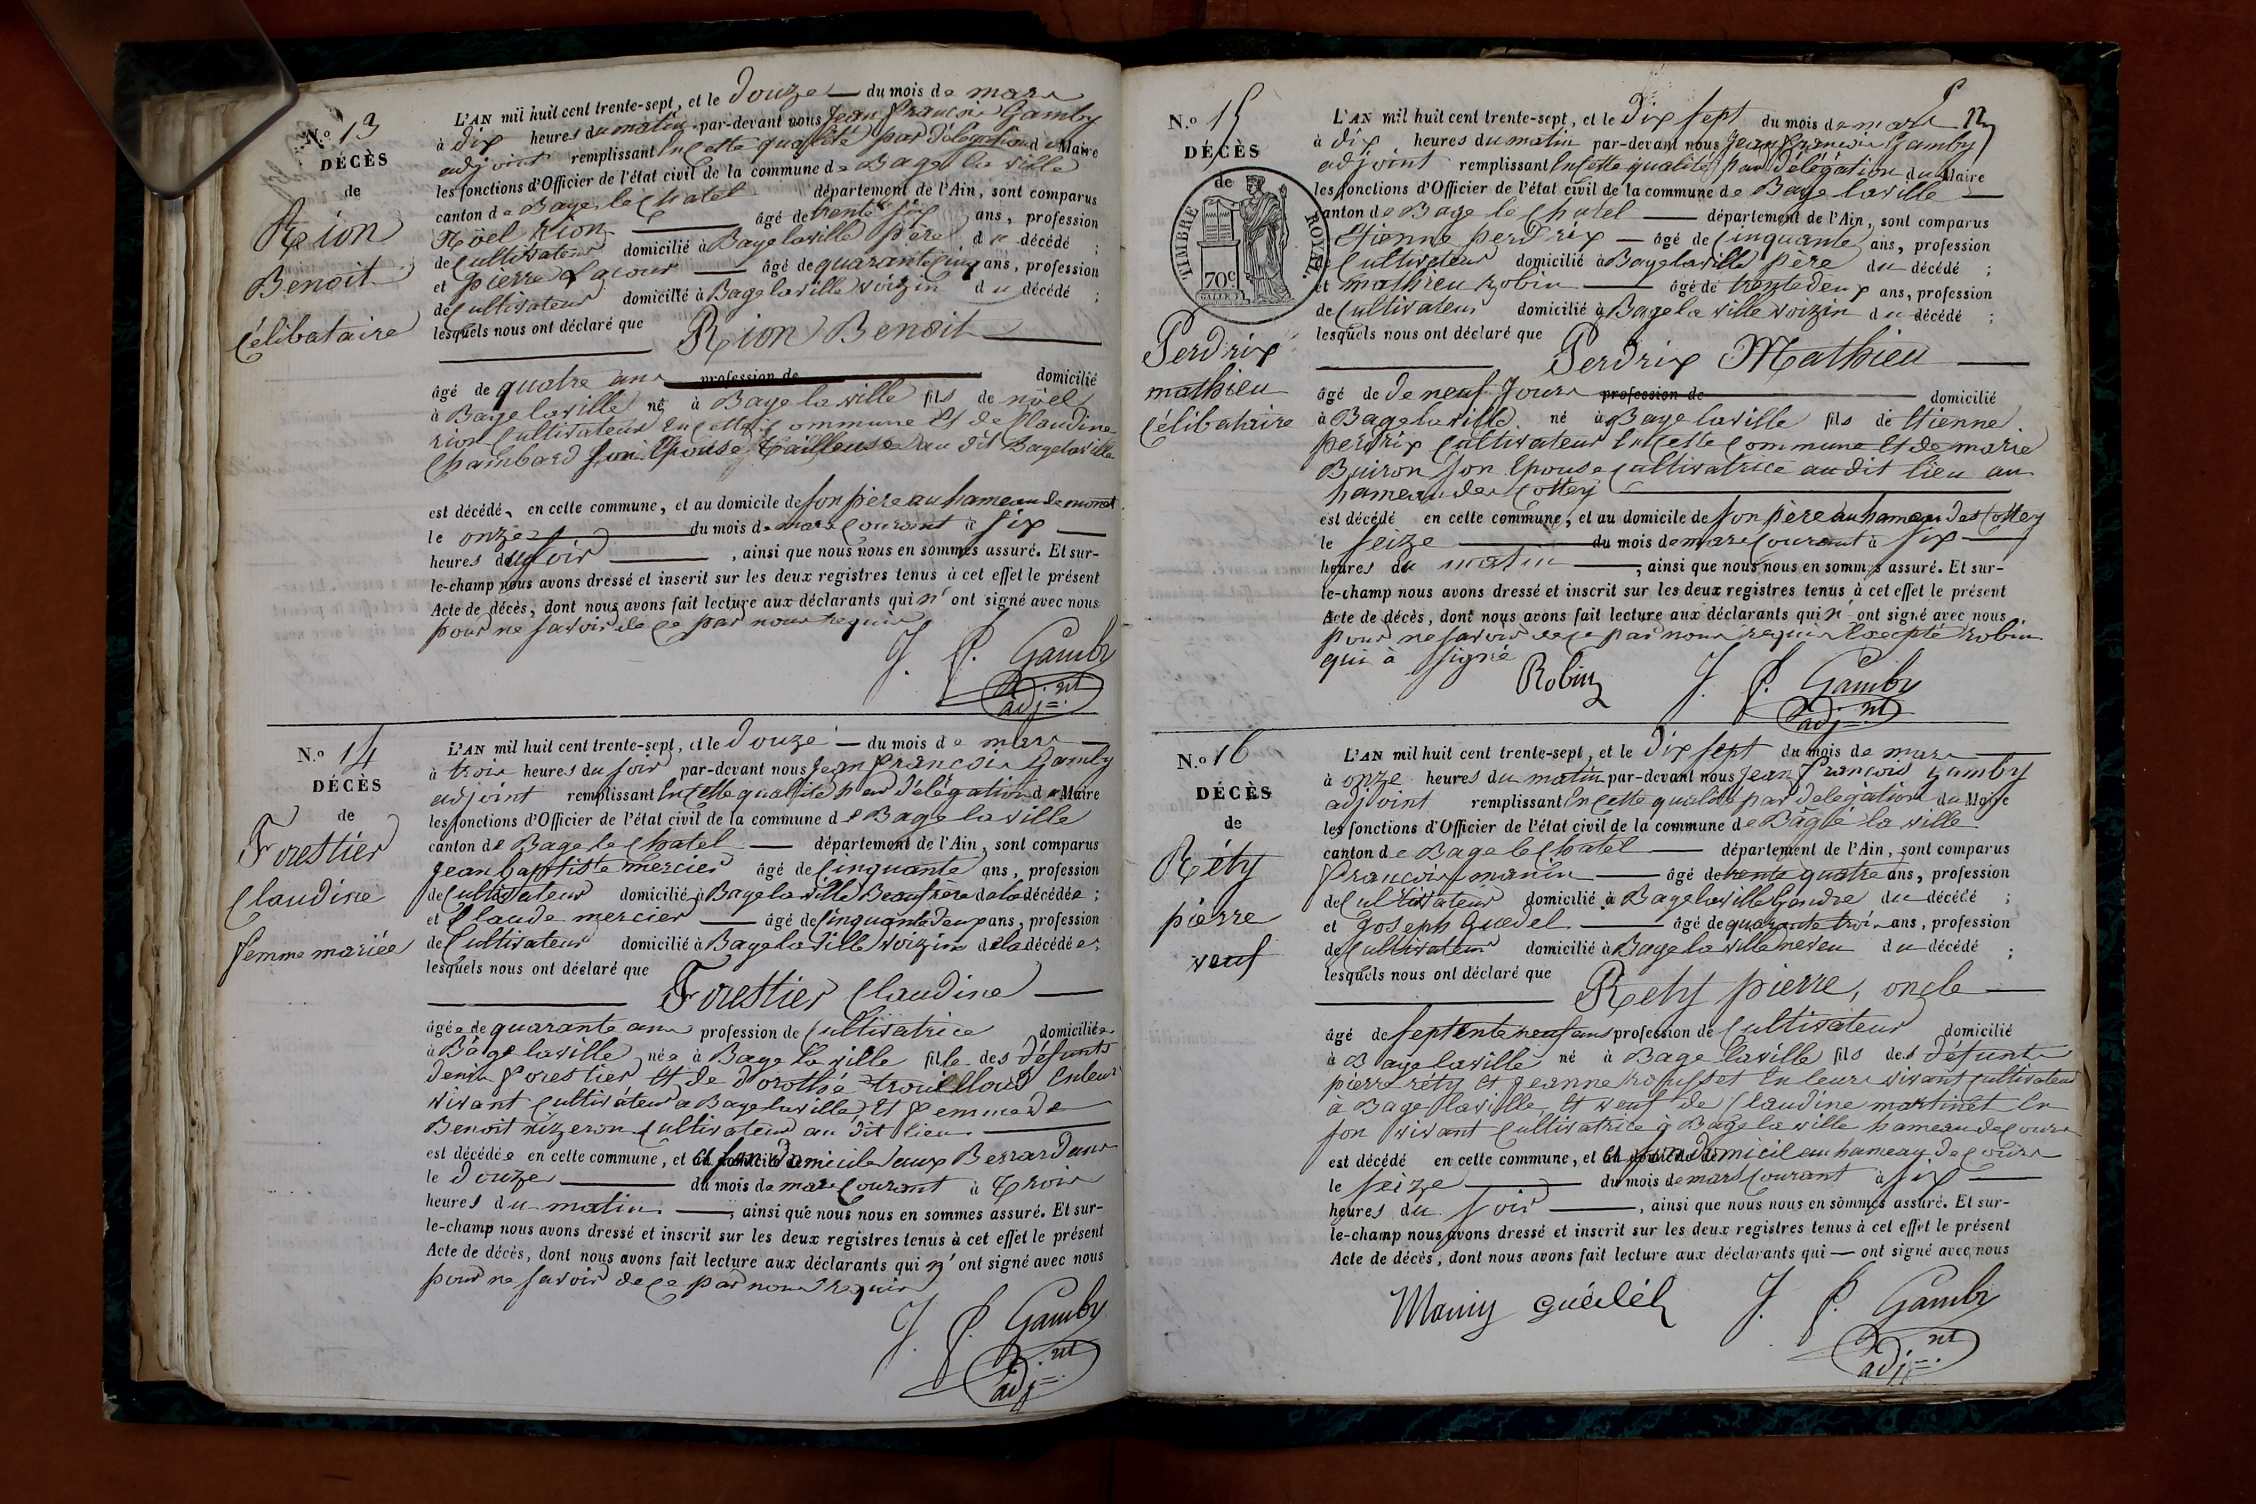 N.o 13
DÉCÈS
de
Rion
Benoit
Célibataire
L'AN mil huit cent trente-sept, et le Douze — du mois de mars
à dix heures du matin par-devant nous Jean françois Gamby
adjoint remplissant En Cette qualité par Délégation du Maire
les fonctions d'Officier de l'état civil de la commune de Bage la ville
canton de Bage le Chatel département de l'Ain, sont comparus
Nöel Rion — âgé de trente six ans, profession
de Cultivateur domicilié à Bage laville père du décédé ;
et pierre Lacour — âgé de quarante Cinq ans, profession
de Cultivateur domicilié à Bage laville voizin du décédé ;
lesquels nous ont déclaré que Rion Benoit
âgé de quatre ans profession de domicilié
à Bage laville né à Bage la ville fils de nöel
rion Cultivateur En Cette Commune Et de Claudine
Chambard Son Epouse Tailleuse au dit Bage laville
est décédé, en cette commune, et au domicile de son père au hameau de monet
le onze du mois de mars Courant à six
heures du soir —, ainsi que nous nous en sommes assuré. Et sur-
le-champ nous avons dressé et inscrit sur les deux registres tenus à cet effet le présent
Acte de décès, dont nous avons fait lecture aux déclarants qui n'ont signé avec nous
pour ne savoir de ce par nous requis
J. f. Gamby
adj.nt
N.o 14
DÉCÈS
de
Forestier
Claudine
femme mariée
L'AN mil huit cent trente-sept, et le Douze — du mois de mars —
à trois heures du soir par-devant nous Jean françois Gamby
adjoint remplissant En Cette qualité par Délégation du Maire
les fonctions d'Officier de l'état civil de la commune de Bage la ville
canton de Bage le Chatel — département de l'Ain, sont comparus
Jean baptiste mercier âgé de Cinquante ans, profession
de Cultivateur domicilié à Bage la ville Beaufrere de la décédée ;
et Claude mercier — âgé de Cinquante deux ans, profession
de Cultivateur domicilié à Bage la ville voizin de la décédée ;
lesquels nous ont déclaré que
Forestier Claudine —
âgée de quarante ans profession de Cultivatrice domiciliée
à Bage laville née à Bage la ville fille des défunts
denis forestier Et de Dorothé trouilloud En leur
vivant Cultivateur a Bage laville Et femme de
Benoit nizeron Cultivateur au dit lieu
est décédée en cette commune, et à son Domicile aux Berrardans
le Douze du mois de mars Courant à trois
heures du matin —, ainsi que nous nous en sommes assuré. Et sur-
le-champ nous avons dressé et inscrit sur les deux registres tenus à cet effet le présent
Acte de décès, dont nous avons fait lecture aux déclarants qui n'ont signé avec nous
pour ne savoir de ce par nous requis
J. f. Gamby
adj.nt
N.o 15
DÉCÈS
de
TIMBRE ROYAL
70c
Perdrix
mathieu
Célibataire
L'AN mil huit cent trente-sept, et le Dix sept du mois de mars
à dix heures du matin par-devant nous Jean françois Gamby
adjoint remplissant En Cette qualité par Délégation du Maire
les fonctions d'Officier de l'état civil de la commune de Bage laville —
canton de Bage le Chatel — département de l'Ain, sont comparus
Etienne perdrix — âgé de Cinquante ans, profession
de Cultivateur domicilié à Bage laville père du décédé ;
et mathieu Robin — âgé de trente deux ans, profession
de Cultivateur domicilié à Bage la ville voizin du décédé ;
lesquels nous ont déclaré que
Perdrix Mathieu —
âgé de de neuf Jours profession de domicilié
à Bage la ville né à Baye laville fils de Etienne
perdrix Cultivateur En Cette Commune Et de marie
Buiron Son Epouse Cultivatrice au dit lieu au
hameau des Cottey
est décédé en cette commune, et au domicile de son père au hameau des Cottey
le seize du mois de mars Courant à six
heures du matin —, ainsi que nous nous en sommes assuré. Et sur-
le-champ nous avons dressé et inscrit sur les deux registres tenus à cet effet le présent
Acte de décès, dont nous avons fait lecture aux déclarants qui n' ont signé avec nous
pour ne savoir de ce par nous requis Excepté robin
qui à signé
Robin J. f. Gamby
adj.nt
N.o 16
DÉCÈS
de
Réty
pierre
veuf
L'AN mil huit cent trente-sept, et le Dix sept du mois de mars
à onze heures du matin par-devant nous Jean François Gamby
adjoint remplissant En Cette qualité par délégation du Maire
les fonctions d'Officier de l'état civil de la commune de Bagé la ville
canton de Bage le Chatel — département de l'Ain, sont comparus
François manin — âgé de trente quatre ans, profession
de Cultivateur domicilié à Bage laville Gendre du décédé ;
et Joseph Guedel — âgé de quarante trois ans, profession
de Cultivateur domicilié à Bage la ville neveu du décédé ;
lesquels nous ont déclaré que
Rety pierre, oncle —
âgé de septente neuf ans profession de Cultivateur domicilié
à Baye laville né à Bage laville fils des défunts
pierre réty Et Jeanne rousset En leurs vivant Cultivateur
à Bage laville, Et veuf de Claudine martinet En
son vivant Cultivatrice à Bage la ville hameau de Cours
est décédé en cette commune, et à son domicil au hameau de Cours
le seize du mois de mars Courant à six —
heures du soir —, ainsi que nous nous en sommes assuré. Et sur-
le-champ nous avons dressé et inscrit sur les deux registres tenus à cet effet le présent
Acte de décès, dont nous avons fait lecture aux déclarants qui — ont signé avec nous
Manin guédel J. f. Gamby
adj.nt